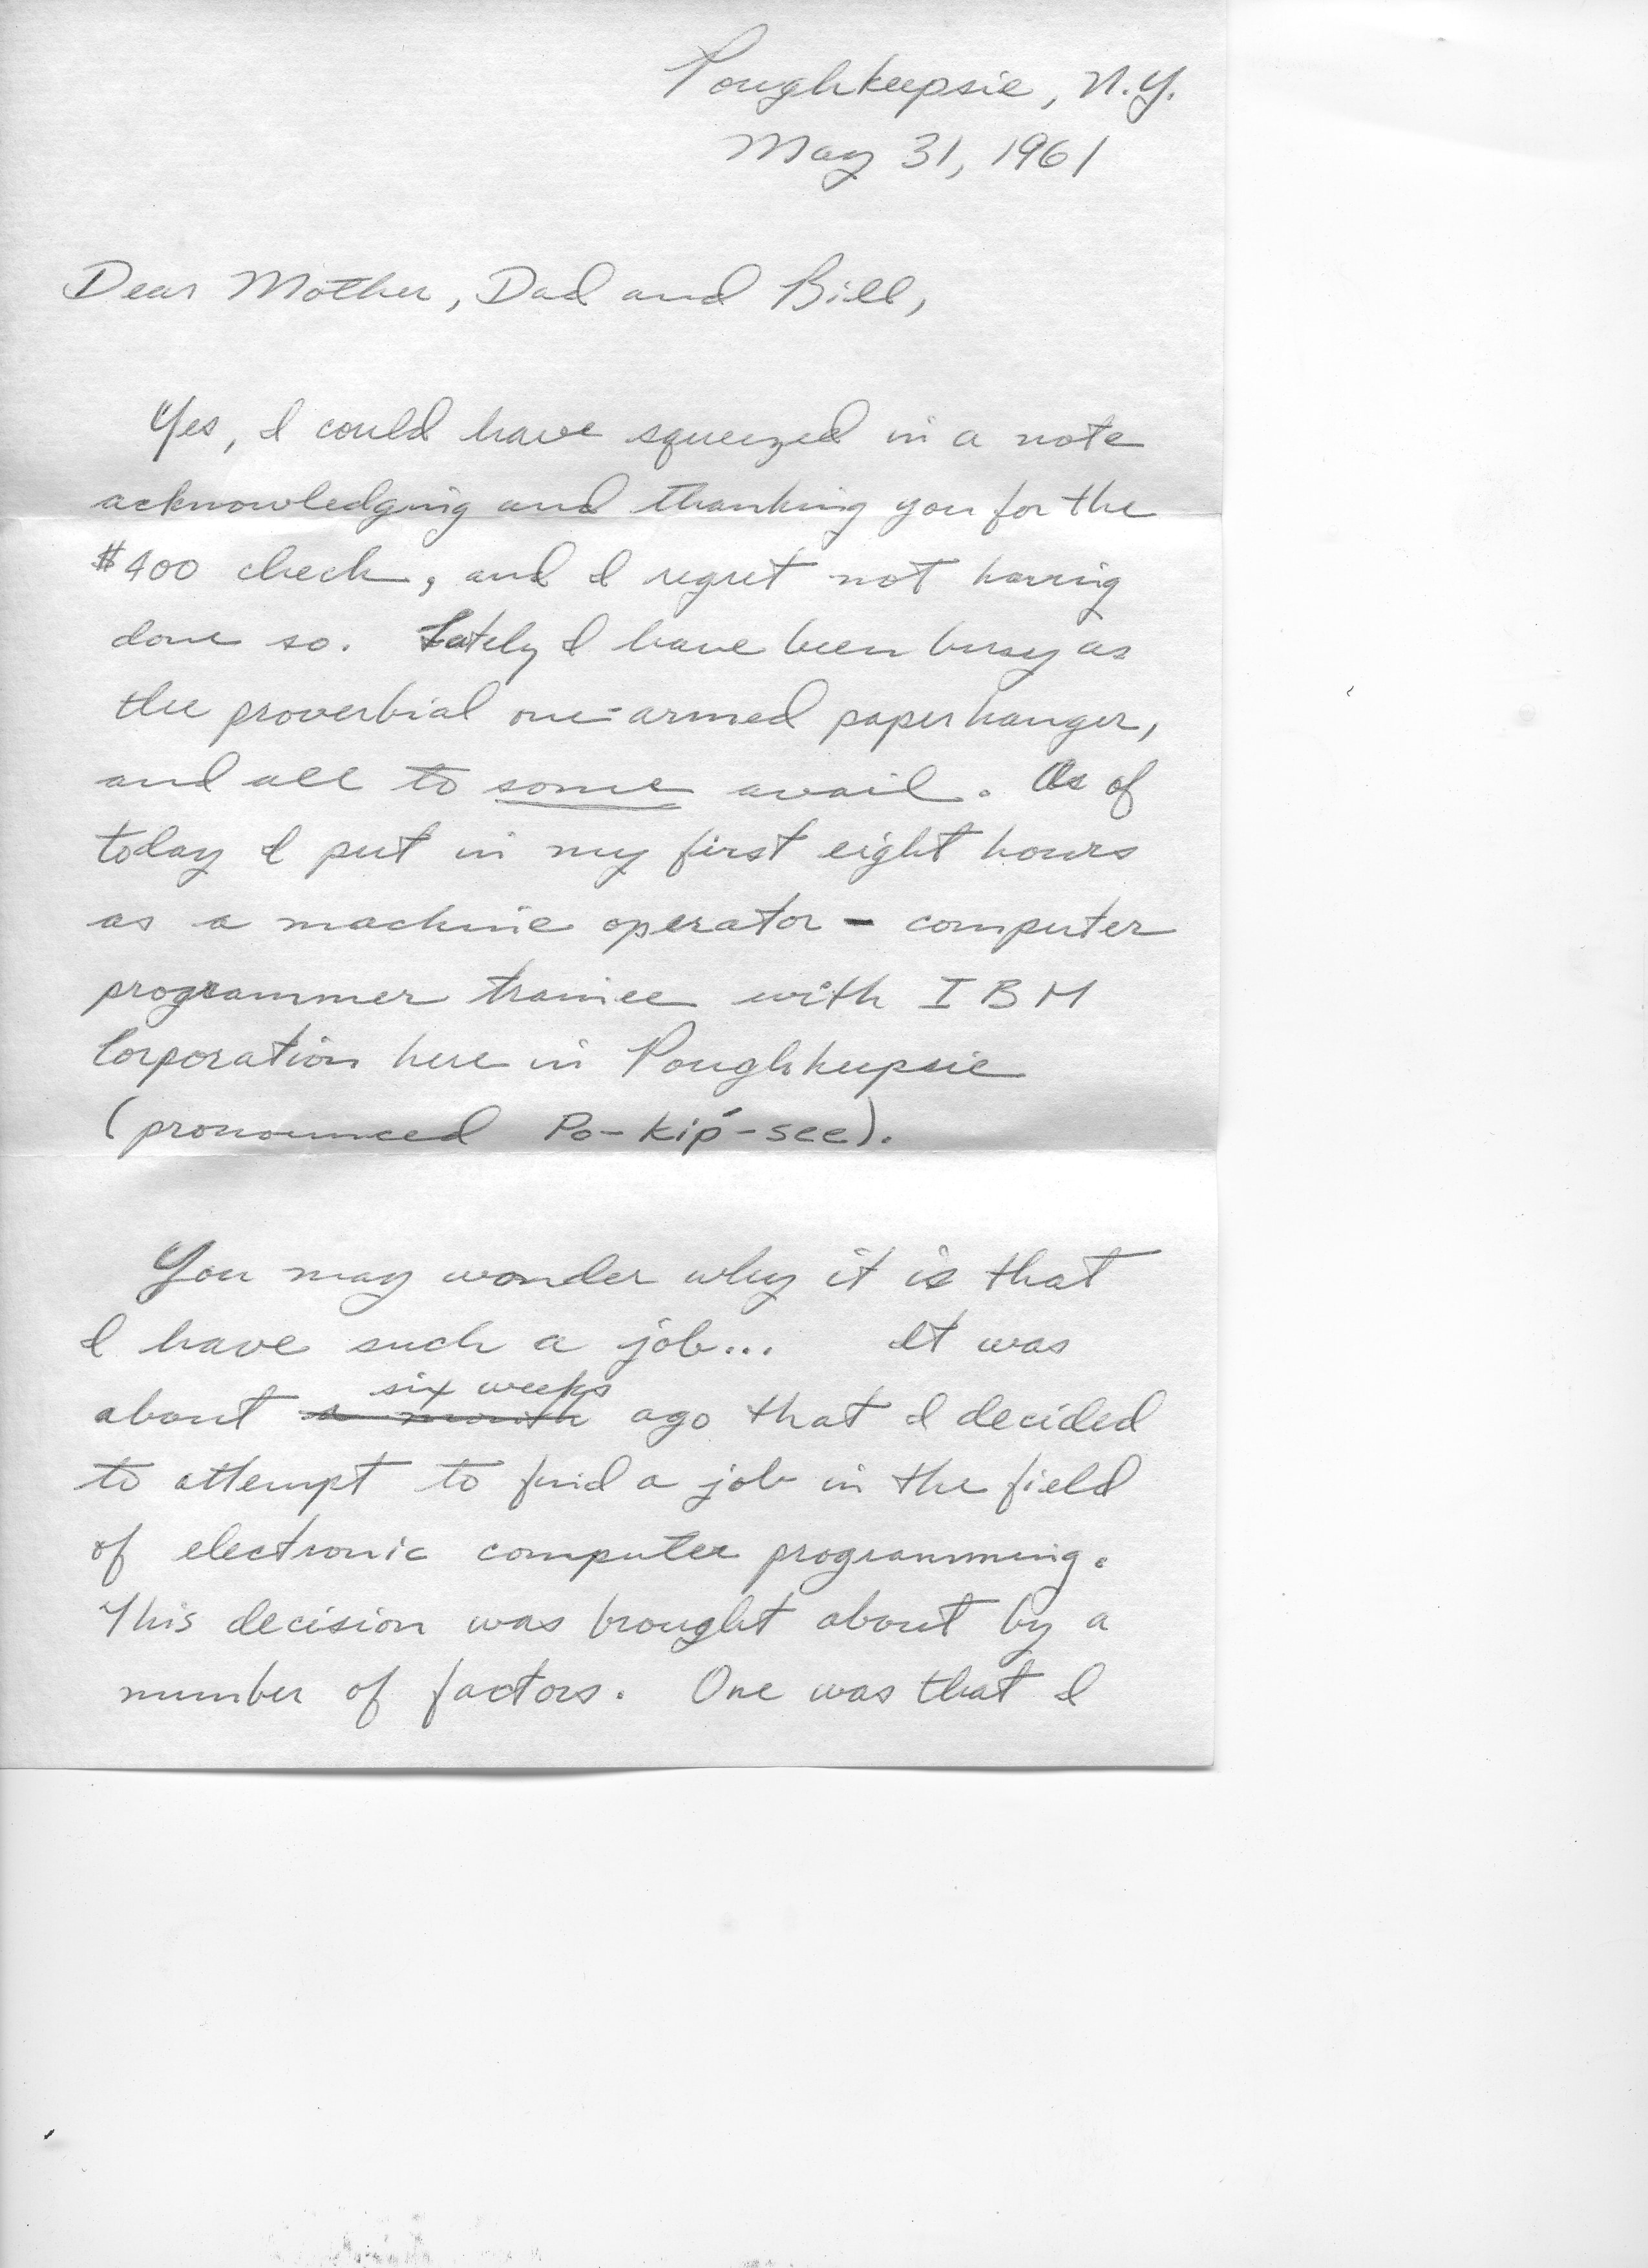 Poughkeepsie, N.Y.
May 31, 1961
Dear Mother, Dad and Bill,
Yes, I could have squeezed in a note
acknowledging and thanking you for the
$400 check, and I regret not having
done so. Lately I have been busy as
the proverbial one-armed paperhanger,
and all to some avail. As of
today I put in my first eight hours
as a machine operator - computer
programmer trainee with IBM
Corporation here in Poughkeepsie
(pronounced Po-kiṕ-see).
You may wonder why it is that
I have such a job... It was
six weeks
about a month ago that I decided
to attempt to find a job in the field
of electronic computer programming.
This decision was brought about by a
number of factors. One was that I